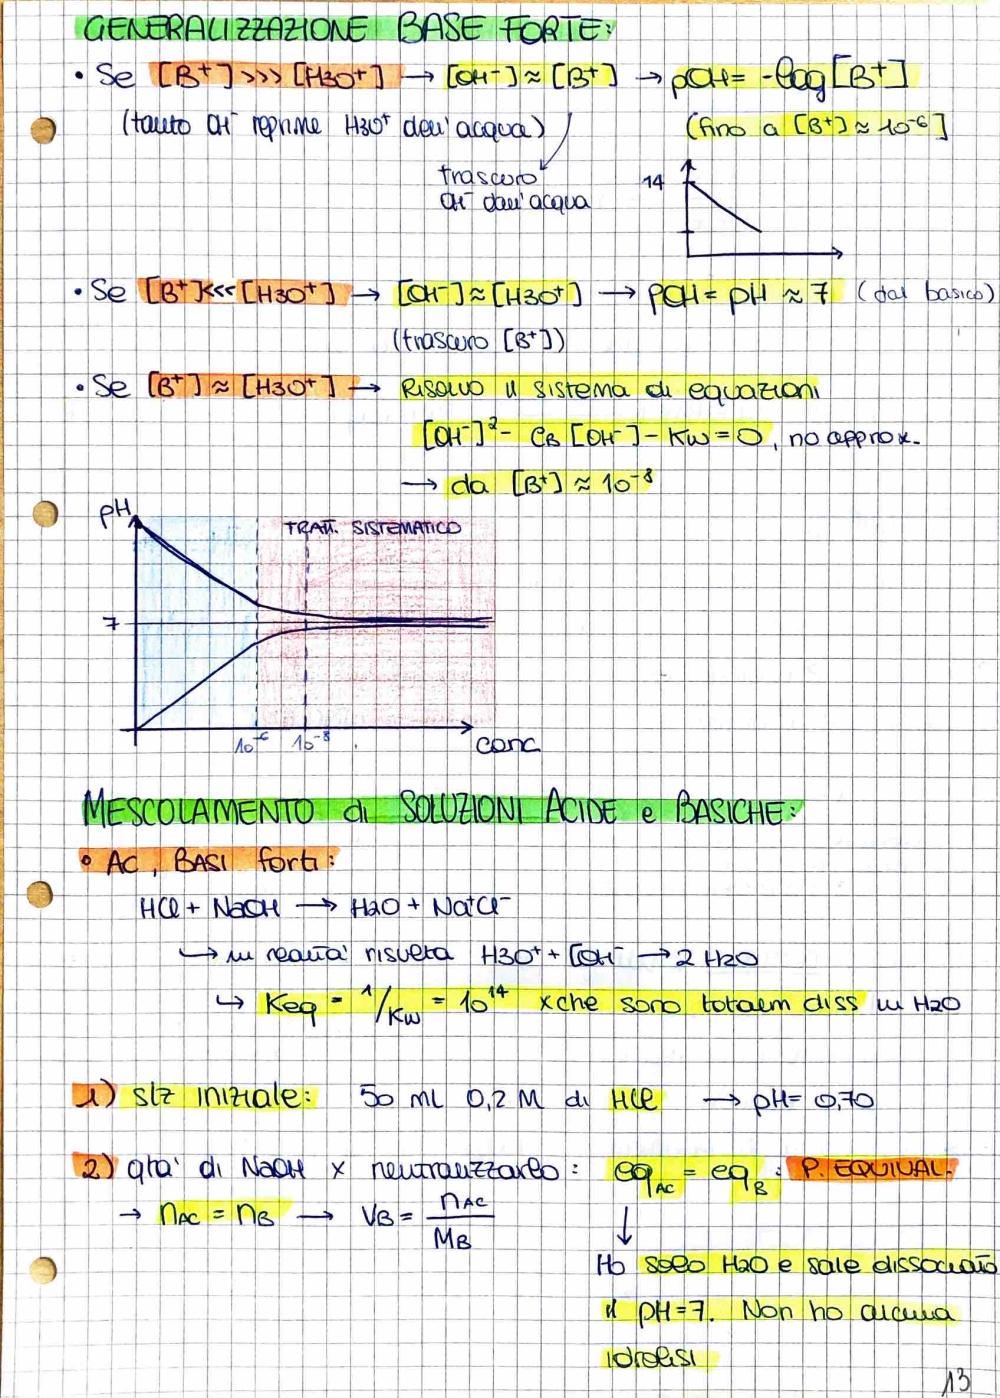 GENERALIZZAZIONE BASE FORTE:
• Se [B⁺] >>> [H3O⁺] → [OH⁻] ≈ [B⁺] → pOH = -log[B⁺]
(tanto OH⁻ reprime H3O⁺ dell'acqua) (fino a [B⁺] ≈ 10⁻⁶]
trascuro
OH⁻ dall'acqua
14
• Se [B⁺] <<< [H3O⁺] → [OH⁻] ≈ [H3O⁺] → pOH = pH ≈ 7 (dal basico)
(trascuro [B⁺])
• Se [B⁺] ≈ [H3O⁺] → Risolvo il sistema di equazioni
[OH⁻]² - CB [OH⁻] - Kw = 0, no approx.
→ da [B⁺] ≈ 10⁻⁸
pH
TRATT. SISTEMATICO
7
10⁻⁶ 10⁻⁸
conc
MESCOLAMENTO di SOLUZIONI ACIDE e BASICHE:
• AC, BASI forti:
HCl + NaOH → H2O + Na⁺Cl⁻
↳ in realtà risulta H3O⁺ + OH⁻ → 2 H2O
↳ Keq = 1/Kw = 10¹⁴ xche sono totalm diss in H2O
1) slz iniziale: 50 mL 0,2 M di HCl → pH = 0,70
2) qta' di NaOH x neutralizzarlo: eqAC = eqB : P. EQUIVAL.
→ nAC = nB → VB = nAC / MB
↓
Ho solo H2O e sale dissociato
il pH = 7. Non ho alcuna
idrolisi
13